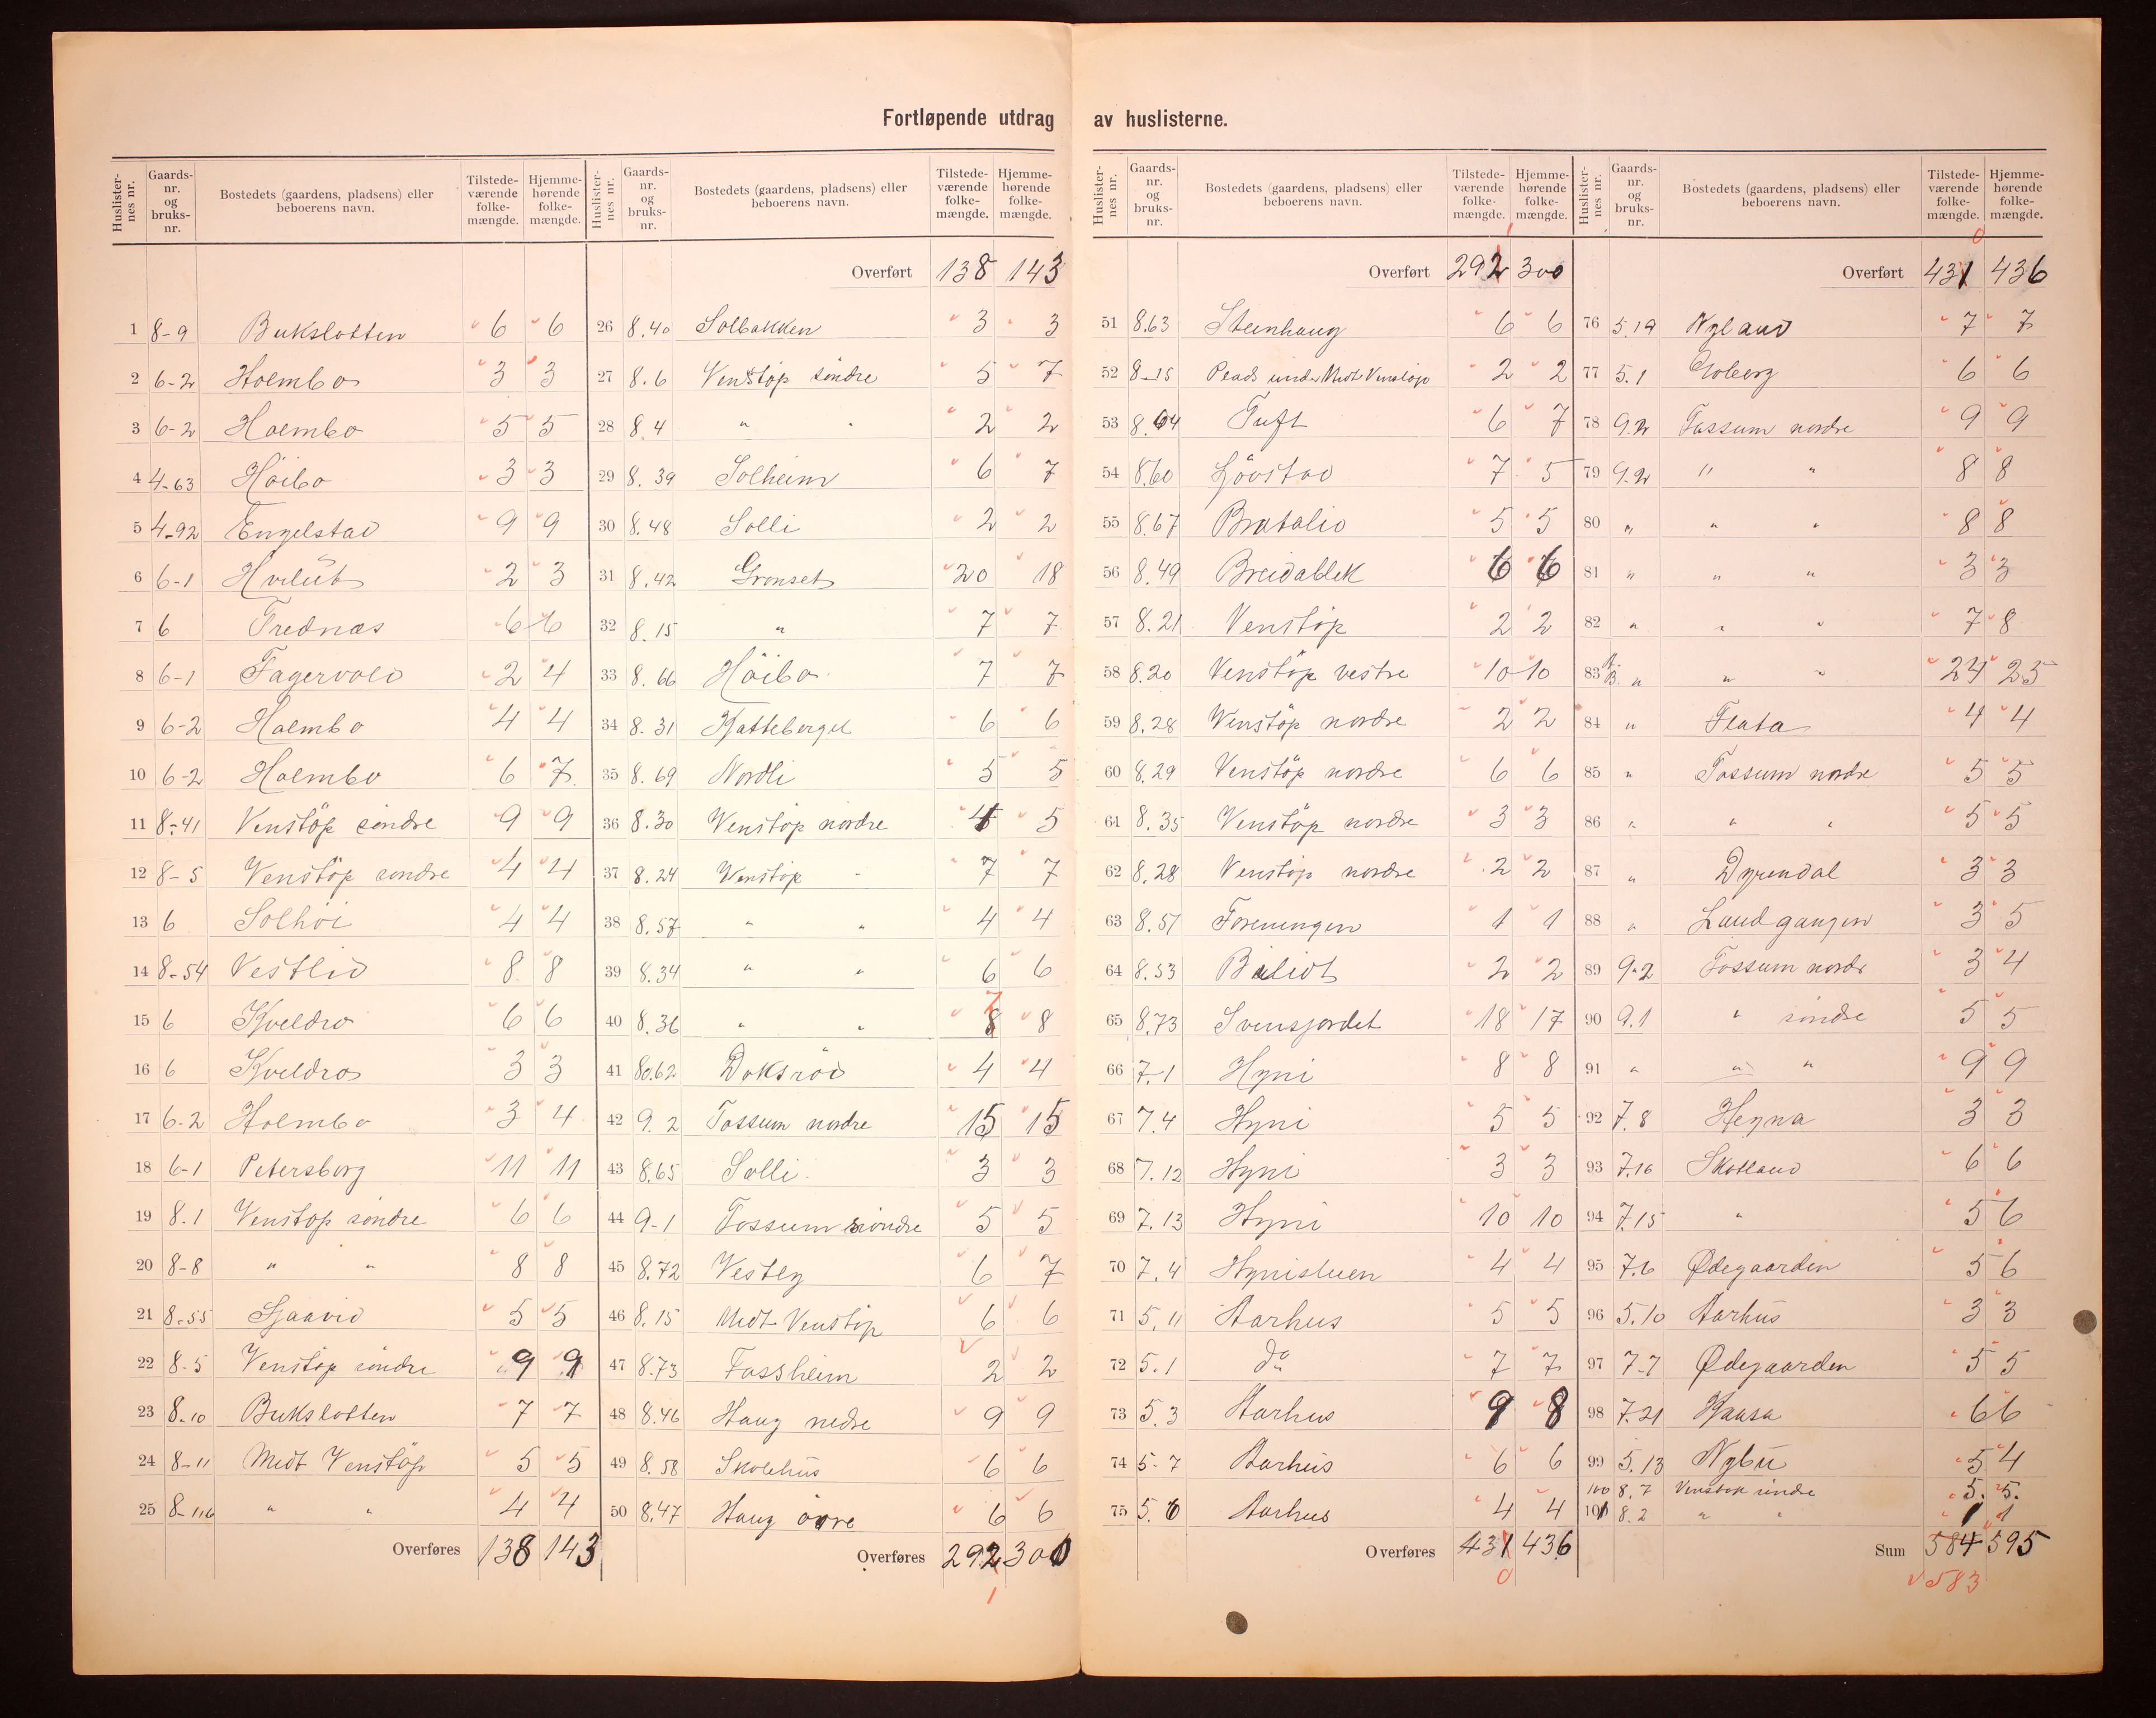 Fortløpende utdrag av huslisterne.
Huslisternes nr. Gaards-nr. og bruks-nr. Bostedets (gaardens, pladsens) eller beboerens navn. Tilstedeværende folkemængde. Hjemmehørende folkemængde.
1 8-9 Bukslotten 6 6
2 6-2 Holmbo 3 3
3 6-2 Holmbo 5 5
4 4-63 Höibo 3 3
5 4-92 Engelstad 9 9
6 6-1 Hvilüt 2 3
7 6 Frednæs 6 6
8 6-1 Fagervold 2 4
9 6-2 Holmbo 4 4
10 6-2 Holmbo 6 7
11 8-41 Venstöp söndre 9 9
12 8-5 Venstöp söndre 4 4
13 6 Solhöi 4 4
14 8-54 Vestlid 8 8
15 6 Kveldro 6 6
16 6 Kveldro 3 3
17 6-2 Holmbo 3 4
18 6-1 Petersborg 11 11
19 8.1 Venstöp söndre 6 6
20 8-8 " " 8 8
21 8-55 5 5
22 8-5 Venstöp söndre 9 9
23 8-10 Bukslotten 7 7
24 8-11 Midt Venstöp 5 5
25 8-116 " " 4 4
Overføres 138 143
Huslisternes nr. Gaards-nr. og bruks-nr. Bostedets (gaardens, pladsens) eller beboerens navn. Tilstedeværende folkemængde. Hjemmehørende folkemængde.
Overført 138 143
26 8.40 Solbakken 3 3
27 8.6 Venstöp söndre 5 7
28 8.4 " " 2 2
29 8.39 Solheim 6 7
30 8.48 Solli 2 2
31 8.42 Grönset 20 18
32 8.15 " 7 7
33 8.66 Höibo 7 7
34 8.31 Katteberget 6 6
35 8.69 Nordli 5 5
36 8.30 Venstöp nordre 4 5
37 8.24 Venstöp " 7 7
38 8.57 " " 4 4
39 8.34 " " 6 6
40 8.36 " " 8 7 8
41 80.62 Doksröd 4 4
42 9.2 Fossum nordre 15 15
43 8.65 Solli 3 3
44 9-1 Fossum söndre 5 5
45 8.72 Vestly 6 7
46 8.15 Midt Venstöp 6 6
47 8.73 Fossheim 2 2
48 8.46 Haug nedre 9 9
49 8.58 Skolehüs 6 6
50 8.47 Haug övre 6 6
Overføres 292 300
1
Huslisternes nr. Gaards-nr. og bruks-nr. Bostedets (gaardens, pladsens) eller beboerens navn. Tilstedeværende folkemængde. Hjemmehørende folkemængde.
1
Overført 292 300
51 8.63 Steinhaug 6 6
52 8-15 Plads under Midt Venstöp 2 2
53 8.64 Tuft 6 7
54 8.60 Lövstad 7 5
55 8.67 Bratalid 5 5
56 8.49 Breidablek 6 6
57 8.21 Venstöp 2 2
58 8.20 Venstöp vestre 10 10
59 8.28 Venstöp nordre 2 2
60 8.29 Venstöp nordre 6 6
61 8.35 Venstöp nordre 3 3
62 8.28 Venstöp nordre 2 2
63 8.51 Foreningen 1 1
64 8.53 Bilidt 2 2
65 8.73 Svensjordet 18 17
66 7.1 Hyni 8 8
67 7.4 Hyni 5 5
68 7.12 Hyni 3 3
69 7.13 Hyni 10 10
70 7.4 Hynistuen 4 4
71 5.11 Aarhus 5 5
72 5.1 do 7 7
73 5.3 Aarhus 9 8
74 5-7 Aarhüs 6 6
75 5.6 Aarhus 4 4
Overføres 431 436
0
Huslisternes nr. Gaards-nr. og bruks-nr. Bostedets (gaardens, pladsens) eller beboerens navn. Tilstedeværende folkemængde. Hjemmehørende folkemængde.
0
Overført 431 436
76 5.19 Nyland 7 7
77 5.1 Solberg 6 6
78 9.2 Fossum nordre 9 9
79 9.2 " " 8 8
80 " " " 8 8
81 " " " 3 3
82 " " " 7 8
83 B. " " " 24 25
84 " Flata 4 4
85 " Fossum nordre 5 5
86 " " " 5 5
87 " Dyrendal 3 3
88 " Landgangen 3 5
89 9.2 Fossum nordr 3 4
90 9.1 " söndre 5 5
91 " " " 9 9
92 7.8 Hegna 3 3
93 7.16 Skotland 6 6
94 7.15 " 5 6
95 7.6 Ødegaarden 5 6
96 5.10 Aarhüs 3 3
97 7-7 Ødegaarden 5 5
98 7.21 Kaasa 6 6
99 5.13 Nybü 5 4
100 8.7 Venstöp söndre 5 5
101 8.2 " " 1 1
Sum 584 595
583